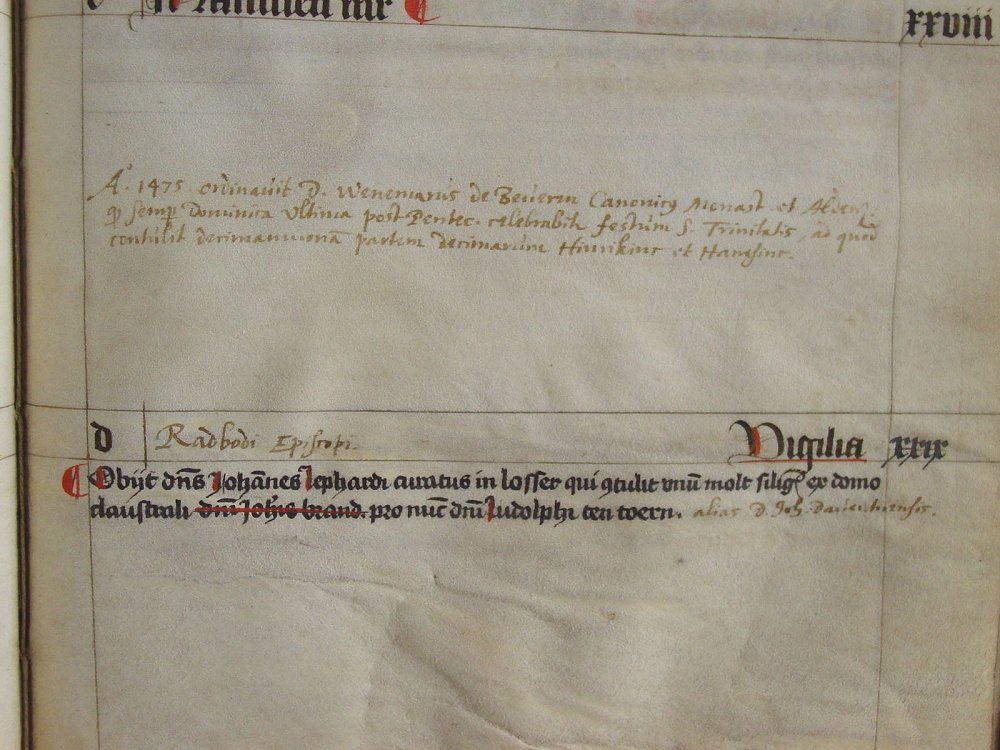 xxviii
A°. 1475 ordinavit D. Wenemarus de Bevern Canonicus Monast. et Aldenz.
qd semp Dominica ultima post Pentec. celebrabit festum S. Trinitatis, ad quod
contulit decimam unam partem decimarum et
d Radbodi Episcopi. Vigilia xxix
¶ Obijt dns Johānes lephardi curatus in losser qui ꝯtulit vnū molt silig ex domo
claustrali dni Johis brand. pro nūc dni ludolphi ten toern. alias D. Joh. Daventriensis.